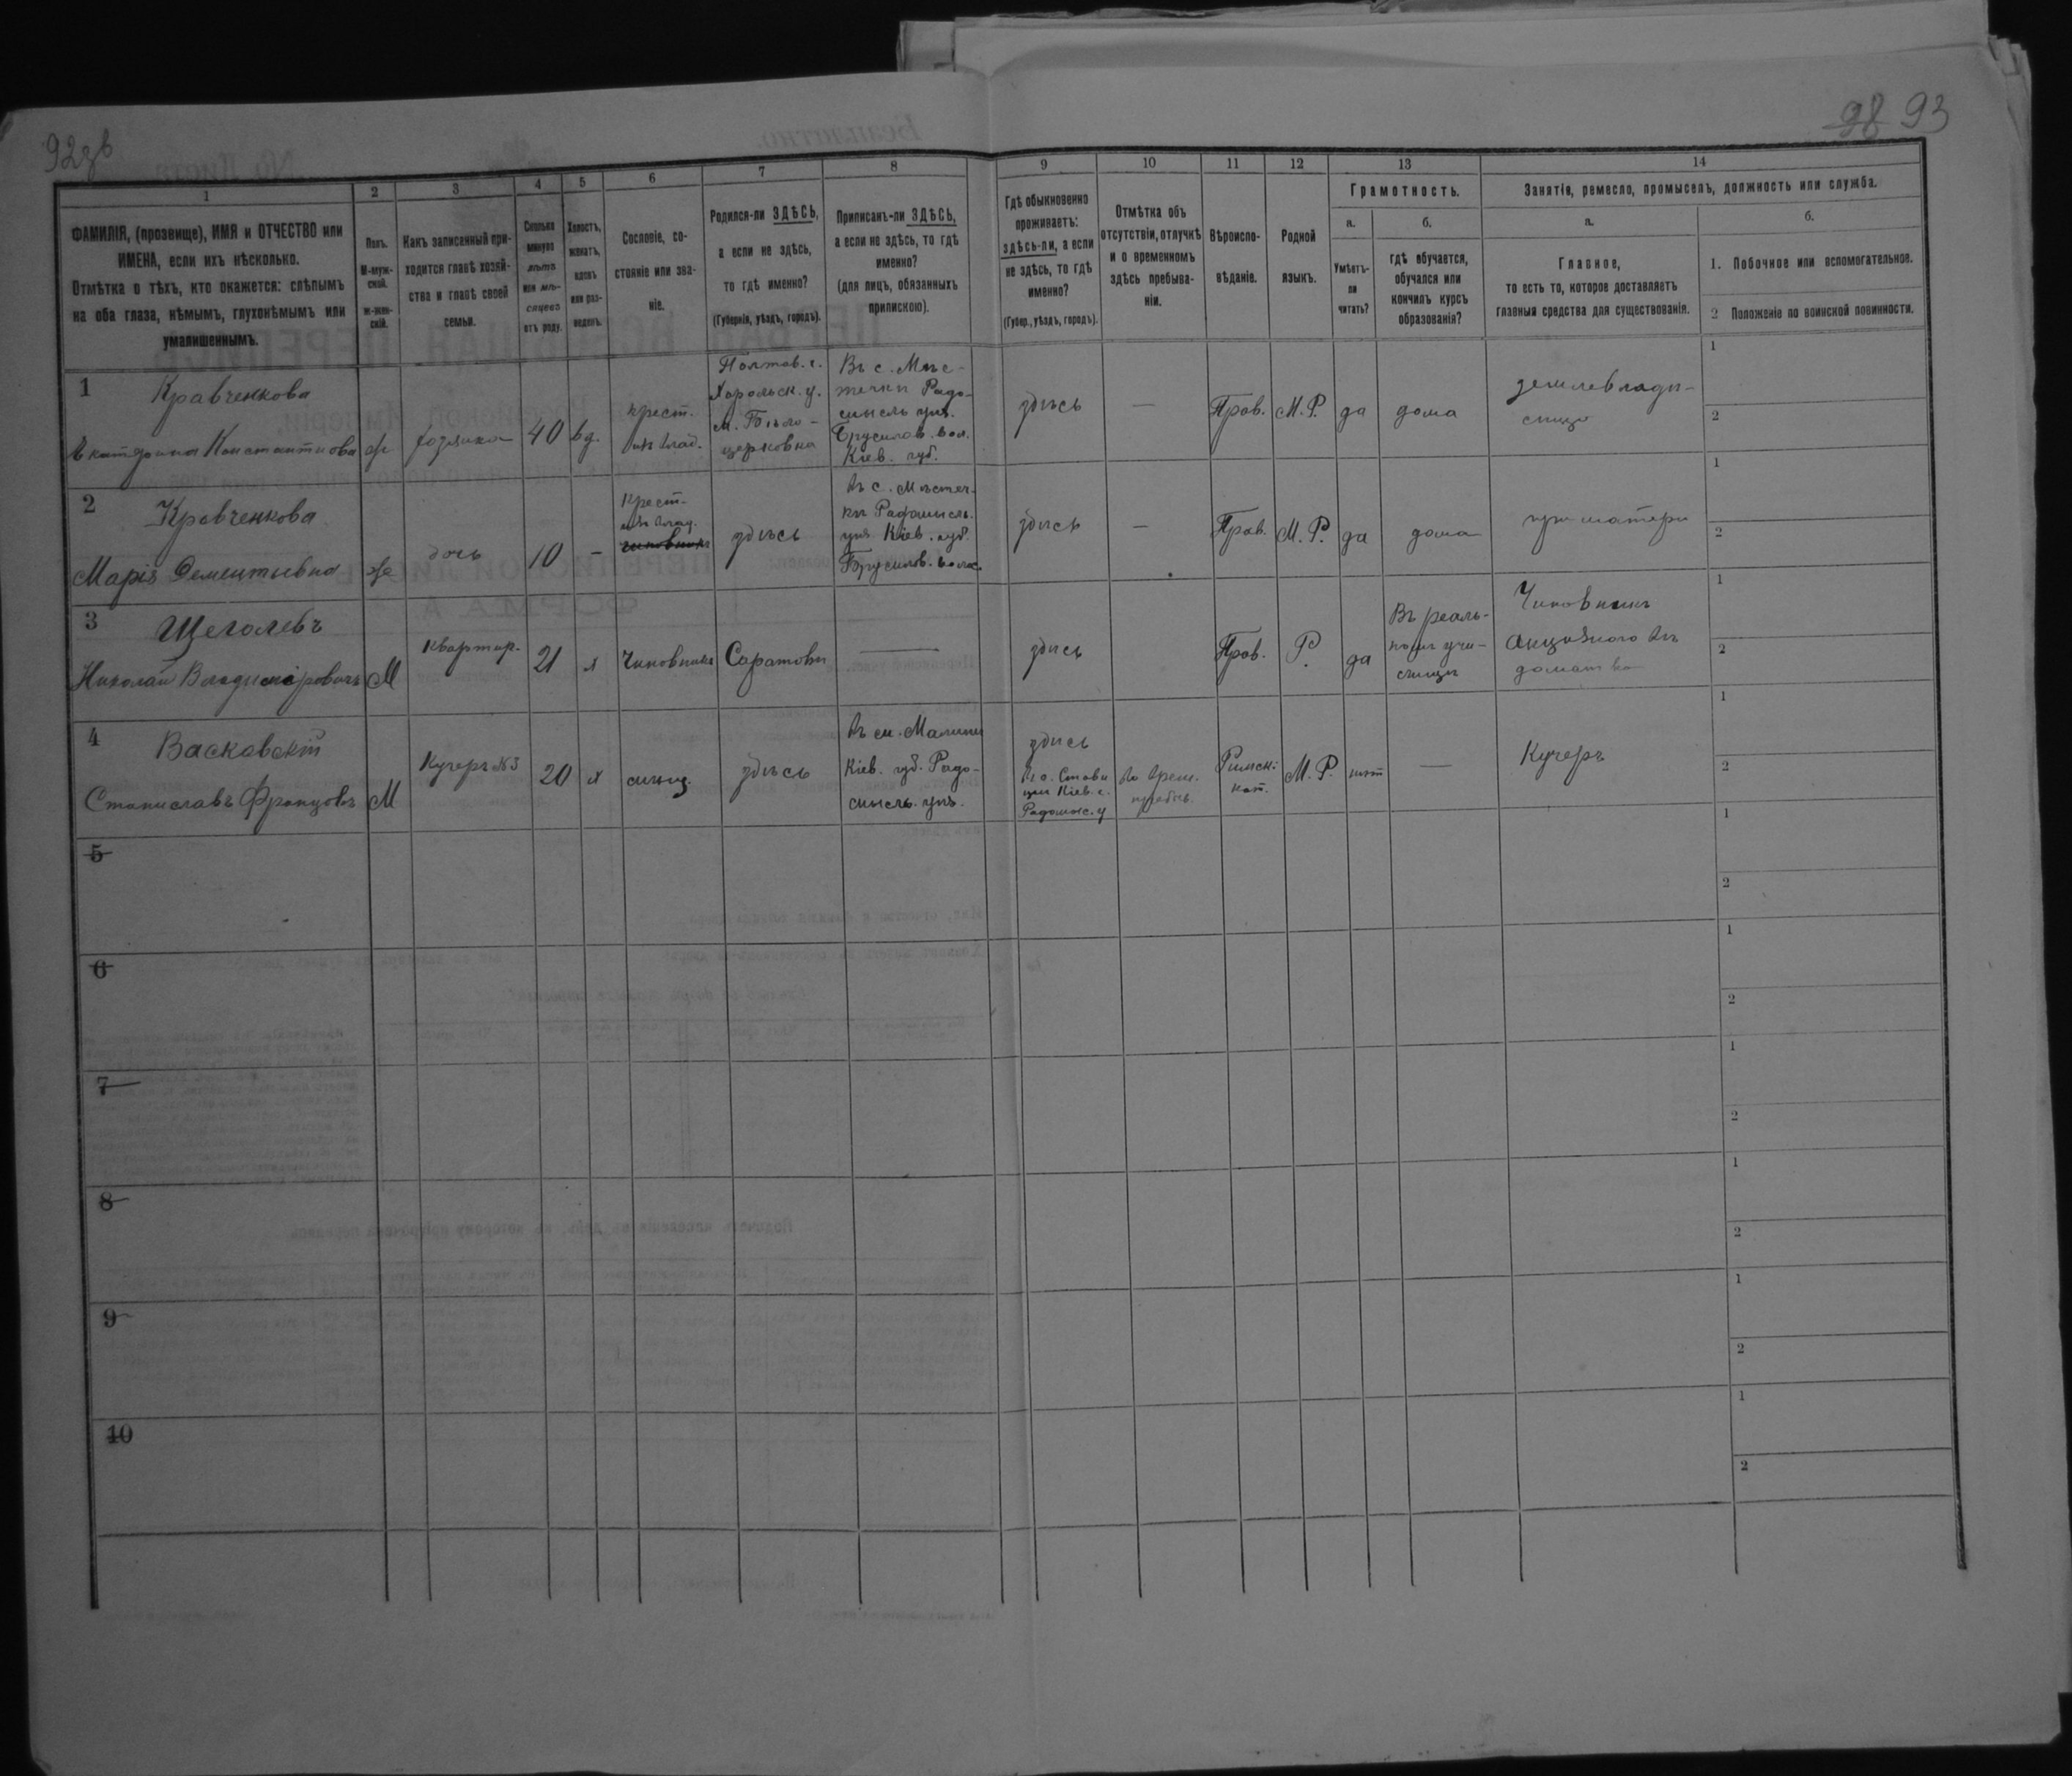 92зв
98 93
1
2
3
4
5
6
7
8
9
10
11
12
13
14
ФАМИЛІЯ, (прозвище), ИМЯ и ОТЧЕСТВО или
ИМЕНА, если ихъ нѣсколько.
Отмѣтка о тѣхъ, кто окажется: слѣпымъ
на оба глаза, нѣмымъ, глухонѣмымъ или
умалишеннымъ.
Полъ.
М-муж-
ской.
ж-жен-
скій.
Какъ записанный при-
ходится главѣ хозяй-
ства и главѣ своей
семьи.
Сколько
минуло
лѣтъ
или мѣ-
сяцевъ
отъ роду.
Холостъ,
женатъ,
вдовъ
или раз-
веденъ.
Сословіе, со-
стояніе или зва-
ніе.
Родился-ли ЗДѢСЬ,
а если не здѣсь,
то гдѣ именно?
(Губернія, уѣздъ, городъ).
Приписанъ-ли ЗДѢСЬ,
а если не здѣсь, то гдѣ
именно?
(для лицъ, обязанныхъ
припискою).
Гдѣ обыкновенно
проживаетъ:
здѣсь-ли, а если
не здѣсь, то гдѣ
именно?
(Губер., уѣздъ, городъ).
Отмѣтка объ
отсутствіи, отлучкѣ
и о временномъ
здѣсь пребыва-
ніи.
Вѣроиспо-
вѣданіе.
Родной
языкъ.
Грамотность.
а.
Умѣетъ-
ли
читать?
б.
гдѣ обучается,
обучался или
кончилъ курсъ
образованія?
Занятіе, ремесло, промыселъ, должность или служба.
а.
Главное,
то есть то, которое доставляетъ
главныя средства для существованія.
б.
1. Побочное или вспомогательное.
2 Положеніе по воинской повинности.
1
Кравченкова
Екатерина Константинова
ж
хозяйка
40
вд.
крест.
изъ влад.
Полтав. г.
Хорольск. у.
м. Бѣло-
церковка
Въ с. Мѣс-
течки Радо-
мысль. уѣз.
Брусилов. вол.
Кіев. губ.
здѣсь
—
Прав.
М.Р.
да
дома
землевладѣ-
лица
1
2
2
Кравченкова
Марія Дементьевна
ж
дочь
10
-
Крест-
изъ влад.
чиновникъ
здѣсь
Въ с. Мѣстеч-
ки Радомысль.
уѣз. Кіев. губ.
Брусилов. волос
здѣсь
—
Прав.
М.Р.
да
дома
при матери
1
2
3
Щеголевъ
Николай Владиміровичъ
М
квартир.
21
х
Чиновникъ
Саратовъ
—
здѣсь
Прав.
Р.
да
Въ реаль-
номъ учи-
лищѣ
Чиновникъ
акцизнаго вѣ-
домства
1
2
4
Васковскій
Станиславъ Францовъ
М
Кучеръ №3
20
х
мѣщ.
здѣсь
Въ м. Малинѣ
Кіев. губ. Радо-
мысль. уѣз.
здѣсь
Кіев. г.
Радомыс. у
Во врем.
пребыв.
Римск:
кат.
М.Р.
нѣт
—
Кучеръ
1
2
5
1
2
6
1
2
7
1
2
8
1
2
9
1
2
10
1
2